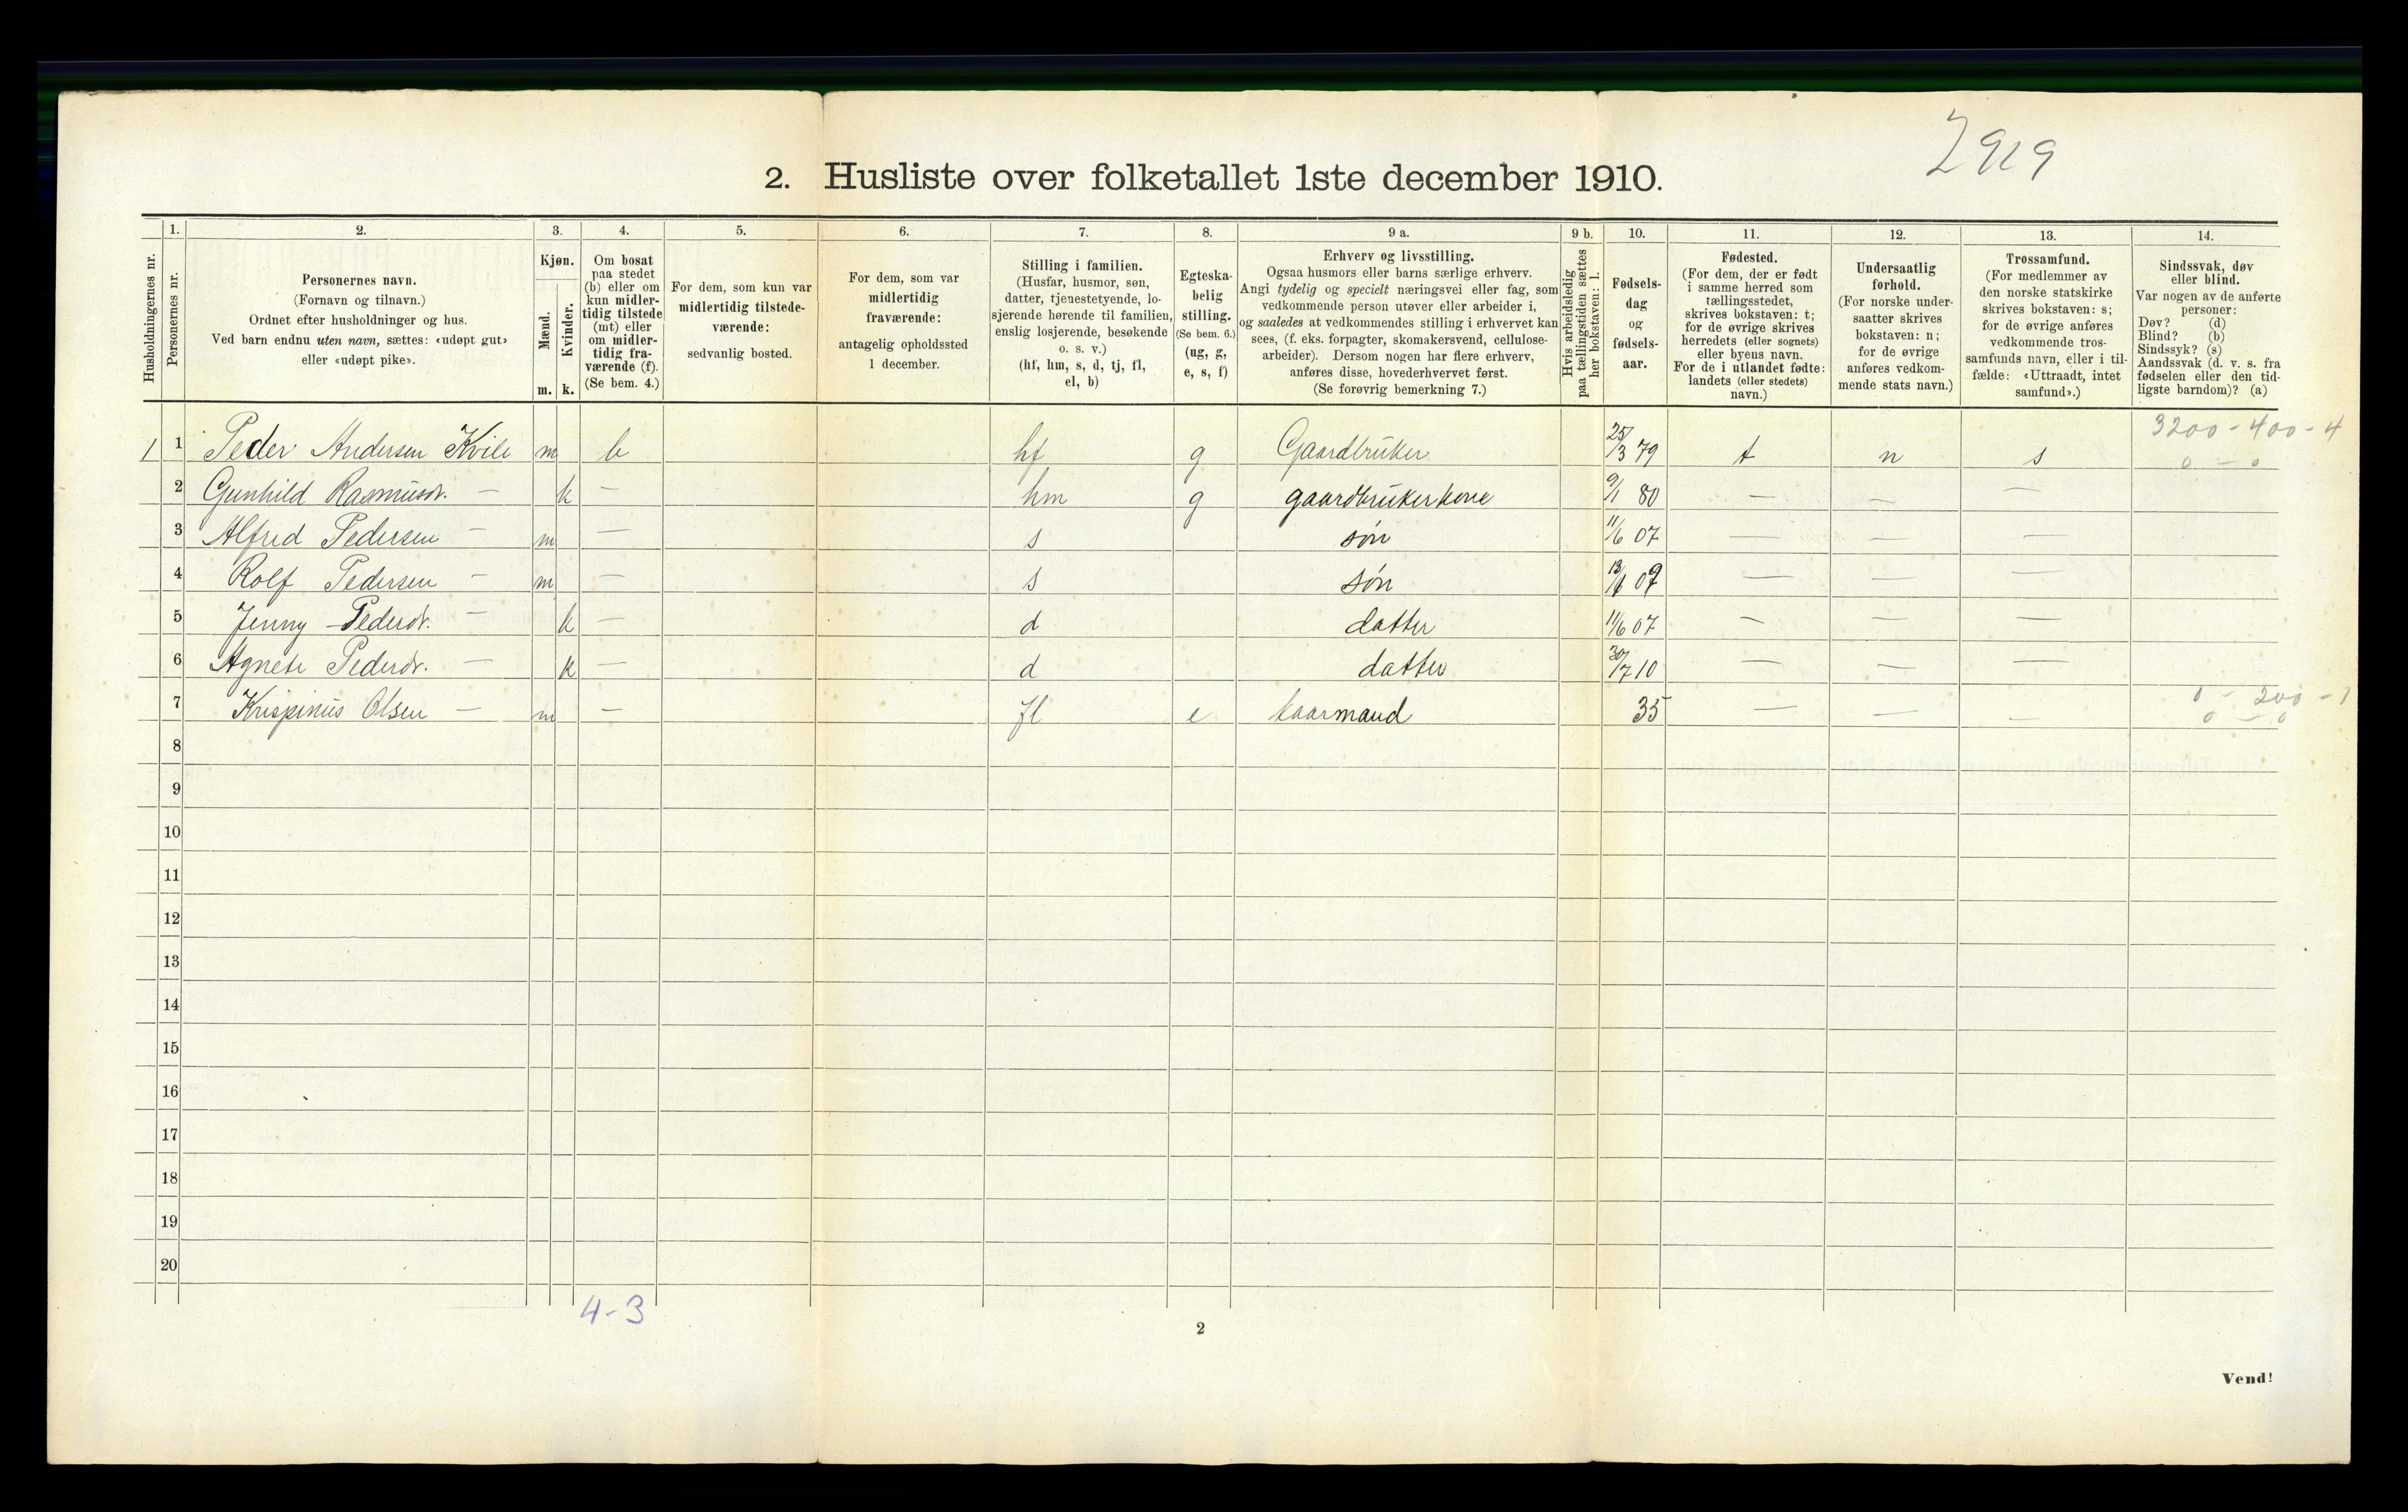 2919
2. Husliste over folketallet 1ste december 1910.
Husholdningernes nr.
1.
Personernes nr.
2.
Personernes navn.
(Fornavn og tilnavn.)
Ordnet efter husholdninger og hus.
Ved barn endnu uten navn, sættes: «udøpt gut»
eller «udøpt pike».
3.
Kjøn.
Mænd.
m.
Kvinder.
k.
4.
Om bosat
paa stedet
(b) eller om
kun midler-
tidig tilstede
(mt) eller
om midler-
tidig fra-
værende (f).
(Se bem. 4.)
5.
For dem, som kun var
midlertidig tilstede-
værende:
sedvanlig bosted.
6.
For dem, som var
midlertidig
fraværende:
antagelig opholdssted
1 december.
7.
Stilling i familien.
(Husfar, husmor, søn,
datter, tjenestetyende, lo-
sjerende hørende til familien,
enslig losjerende, besøkende
o. s. v.)
(hf, hm, s, d, tj, fl,
el, b)
8.
Egteska-
belig
stilling.
(Se bem. 6.)
(ug, g,
e, s, f)
9 a.
Erhverv og livsstilling.
Ogsaa husmors eller barns særlige erhverv.
Angi tydelig og specielt næringsvei eller fag, som
vedkommende person utøver eller arbeider i,
og saaledes at vedkommendes stilling i erhvervet kan
sees, (f. eks. forpagter, skomakersvend, cellulose-
arbeider). Dersom nogen har flere erhverv,
anføres disse, hovederhvervet først.
(Se forøvrig bemerkning 7.)
9 b.
Hvis arbeidsledig
paa tællingstiden sættes
her bokstaven: l.
10.
Fødsels-
dag
og
fødsels-
aar.
11.
Fødested.
(For dem, der er født
i samme herred som
tællingsstedet,
skrives bokstaven: t;
for de øvrige skrives
herredets (eller sognets)
eller byens navn.
For de i utlandet fødte:
landets (eller stedets)
navn.)
12.
Undersaatlig
forhold.
(For norske under-
saatter skrives
bokstaven: n;
for de øvrige
anføres vedkom-
mende stats navn.)
13.
Trossamfund.
(For medlemmer av
den norske statskirke
skrives bokstaven: s;
for de øvrige anføres
vedkommende tros-
samfunds navn, eller i til-
fælde: «Uttraadt, intet
samfund».)
14.
Sindssvak, døv
eller blind.
Var nogen av de anførte
personer:
Døv? (d)
Blind? (b)
Sindssyk? (s)
Aandssvak (d. v. s. fra
fødselen eller den tid-
ligste barndom)? (a)
3200 - 400 - 4
1 1 Peder Andersen Kvile m b hf g Gaardbruker 25/3 79 t n s 0 - 0
2 Gunhild Rasmusdr. — k — hm g gaardbrukerkone 9/1 80 — — —
3 Alfred Pedersen — m — s søn 11/6 07 — — —
4 Rolf Pedersen — m — s søn 09 — — —
5 Jenny Pedersdr. — k — d datter 11/6 07 — — —
6 Agnete Pedersdr. — k — d datter 30/7 10 — — —
0 - 200 - 1
7 Krispinus Olsen — m — fl e kaarmand 35 — — — 0 - 0
8
9
10
11
12
13
14
15
16
17
18
19
20
4-3
2
Vend!